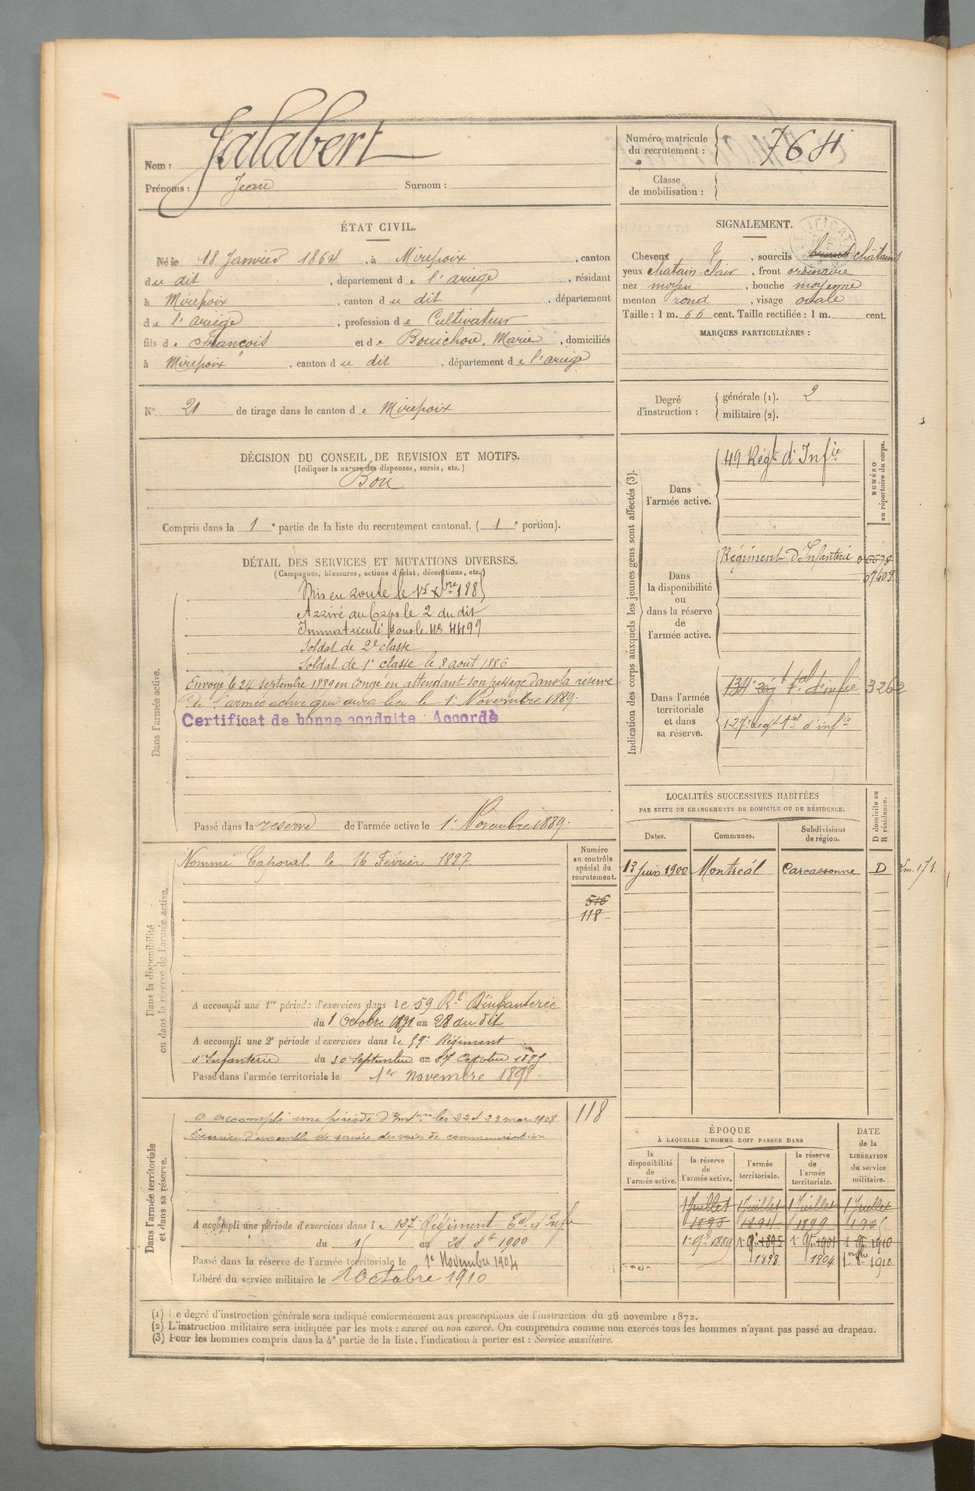 Nom : Jalabert
Prénoms : Jean Surnom :
Numéro matricule
du recrutement : 764
Classe
de mobilisation :
ÉTAT CIVIL.
Né le 18 Janvier 1864, à Mirepoix, canton
du dit, département de l'ariège, résidant
à Mirepoix, canton du dit, département
de l'ariège, profession de Cultivateur
fils de François et de Bouichou, Marie, domiciliés
à Mirepoix, canton du dit, département de l'ariège
N° 21 de tirage dans le canton de Mirepoix
SIGNALEMENT.
Cheveux, sourcils châtains
yeux chatain-clair, front ordinaire
nez moyen, bouche moyenne
menton rond, visage ovale
Taille : 1 m. 66 cent. Taille rectifiée : 1 m. cent.
MARQUES PARTICULIÈRES :
Degré
d'instruction :
générale (1). 2
militaire (2).
DÉCISION DU CONSEIL DE REVISION ET MOTIFS.
(Indiquer la nature des dispenses, sursis, etc.)
Bon
Compris dans la 1e partie de la liste du recrutement cantonal. (1e portion).
DÉTAIL DES SERVICES ET MUTATIONS DIVERSES.
(Campagnes, blessures, actions d'éclat, décorations, etc.)
Dans l'armée active.
Mis en route le
Arrivé au Corps le 2 du dit
Immatriculé sous le N° 4499
Soldat de 2e classe
Soldat de 1e classe le 8 aout 1886
Envoyé le 24 septembre 1889 en congé en attendant son passage dans la réserve
de l'armée active qui aura lieu le 1er Novembre 1889.
Certificat de bonne conduite Accordé
Passé dans la reserve de l'armée active le 1er Novembre 1889.
Indication des corps auxquels les jeunes gens sont affectés (3).
NUMÉRO
au répertoire du corps.
Dans
l'armée active.
49 Régt d'Infie
Dans
la disponibilité
ou
dans la réserve
de
l'armée active.
Régiment d'Infanterie
Dans l'armée
territoriale
et dans
sa réserve.
134e régt tal d'infie 3262
127e régt tal d'infie
LOCALITÉS SUCCESSIVES HABITÉES
PAR SUITE DE CHANGEMENTS DE DOMICILE OU DE RÉSIDENCE.
Dates. Communes. Subdivisions
de région. D domicile ou
R résidence.
13 juin 1900 Montréal Carcassonne D
Dans la disponibilité
ou dans la réserve de l'armée active.
Numéro
au contrôle
spécial du
recrutement.
Nommé Caporal le 16 Février 1897
516
118
A accompli une 1re période d'exercices dans le 59 Rt d'infanterie
du 1 Octobre 1891 au 28 du dit
A accompli une 2e période d'exercices dans le 59e Régiment
d'Infanterie du 30 Septembre au Octobre
Passé dans l'armée territoriale le 1er novembre 1898.
Dans l'armée territoriale
et dans sa réserve.
a accompli une période d'inson les 22 et 23 mai 1908 118
Exercice d'ensemble de service des voies de communication
A accompli une période d'exercices dans le 127 Régiment tal d'Infie
du 15 au 28 8bre 1900
Passé dans la réserve de l'armée territoriale le 1er Novembre 1904
Libéré du service militaire le 1 Octobre 1910
ÉPOQUE
À LAQUELLE L'HOMME DOIT PASSER DANS
DATE
de la
LIBÉRATION
du service
militaire.
la
disponibilité
de
l'armée active.
la réserve
de
l'armée active.
l'armée
territoriale.
la réserve
de
l'armée
territoriale.
1 Juillet 1 Juillet 1 Juillet 1 Juillet
1890 1894 1899 1905
1er 9bre 1889 1er 9bre 1895 1er 9bre 1901 1910
1898 1904 1910
(1) Le degré d'instruction générale sera indiqué conformément aux prescriptions de l'instruction du 26 novembre 1872.
(2) L'instruction militaire sera indiquée par les mots : exercé ou non exercé. On comprendra comme non exercés tous les hommes n'ayant pas passé au drapeau.
(3) Pour les hommes compris dans la 4e partie de la liste, l'indication à porter est : Service auxiliaire.